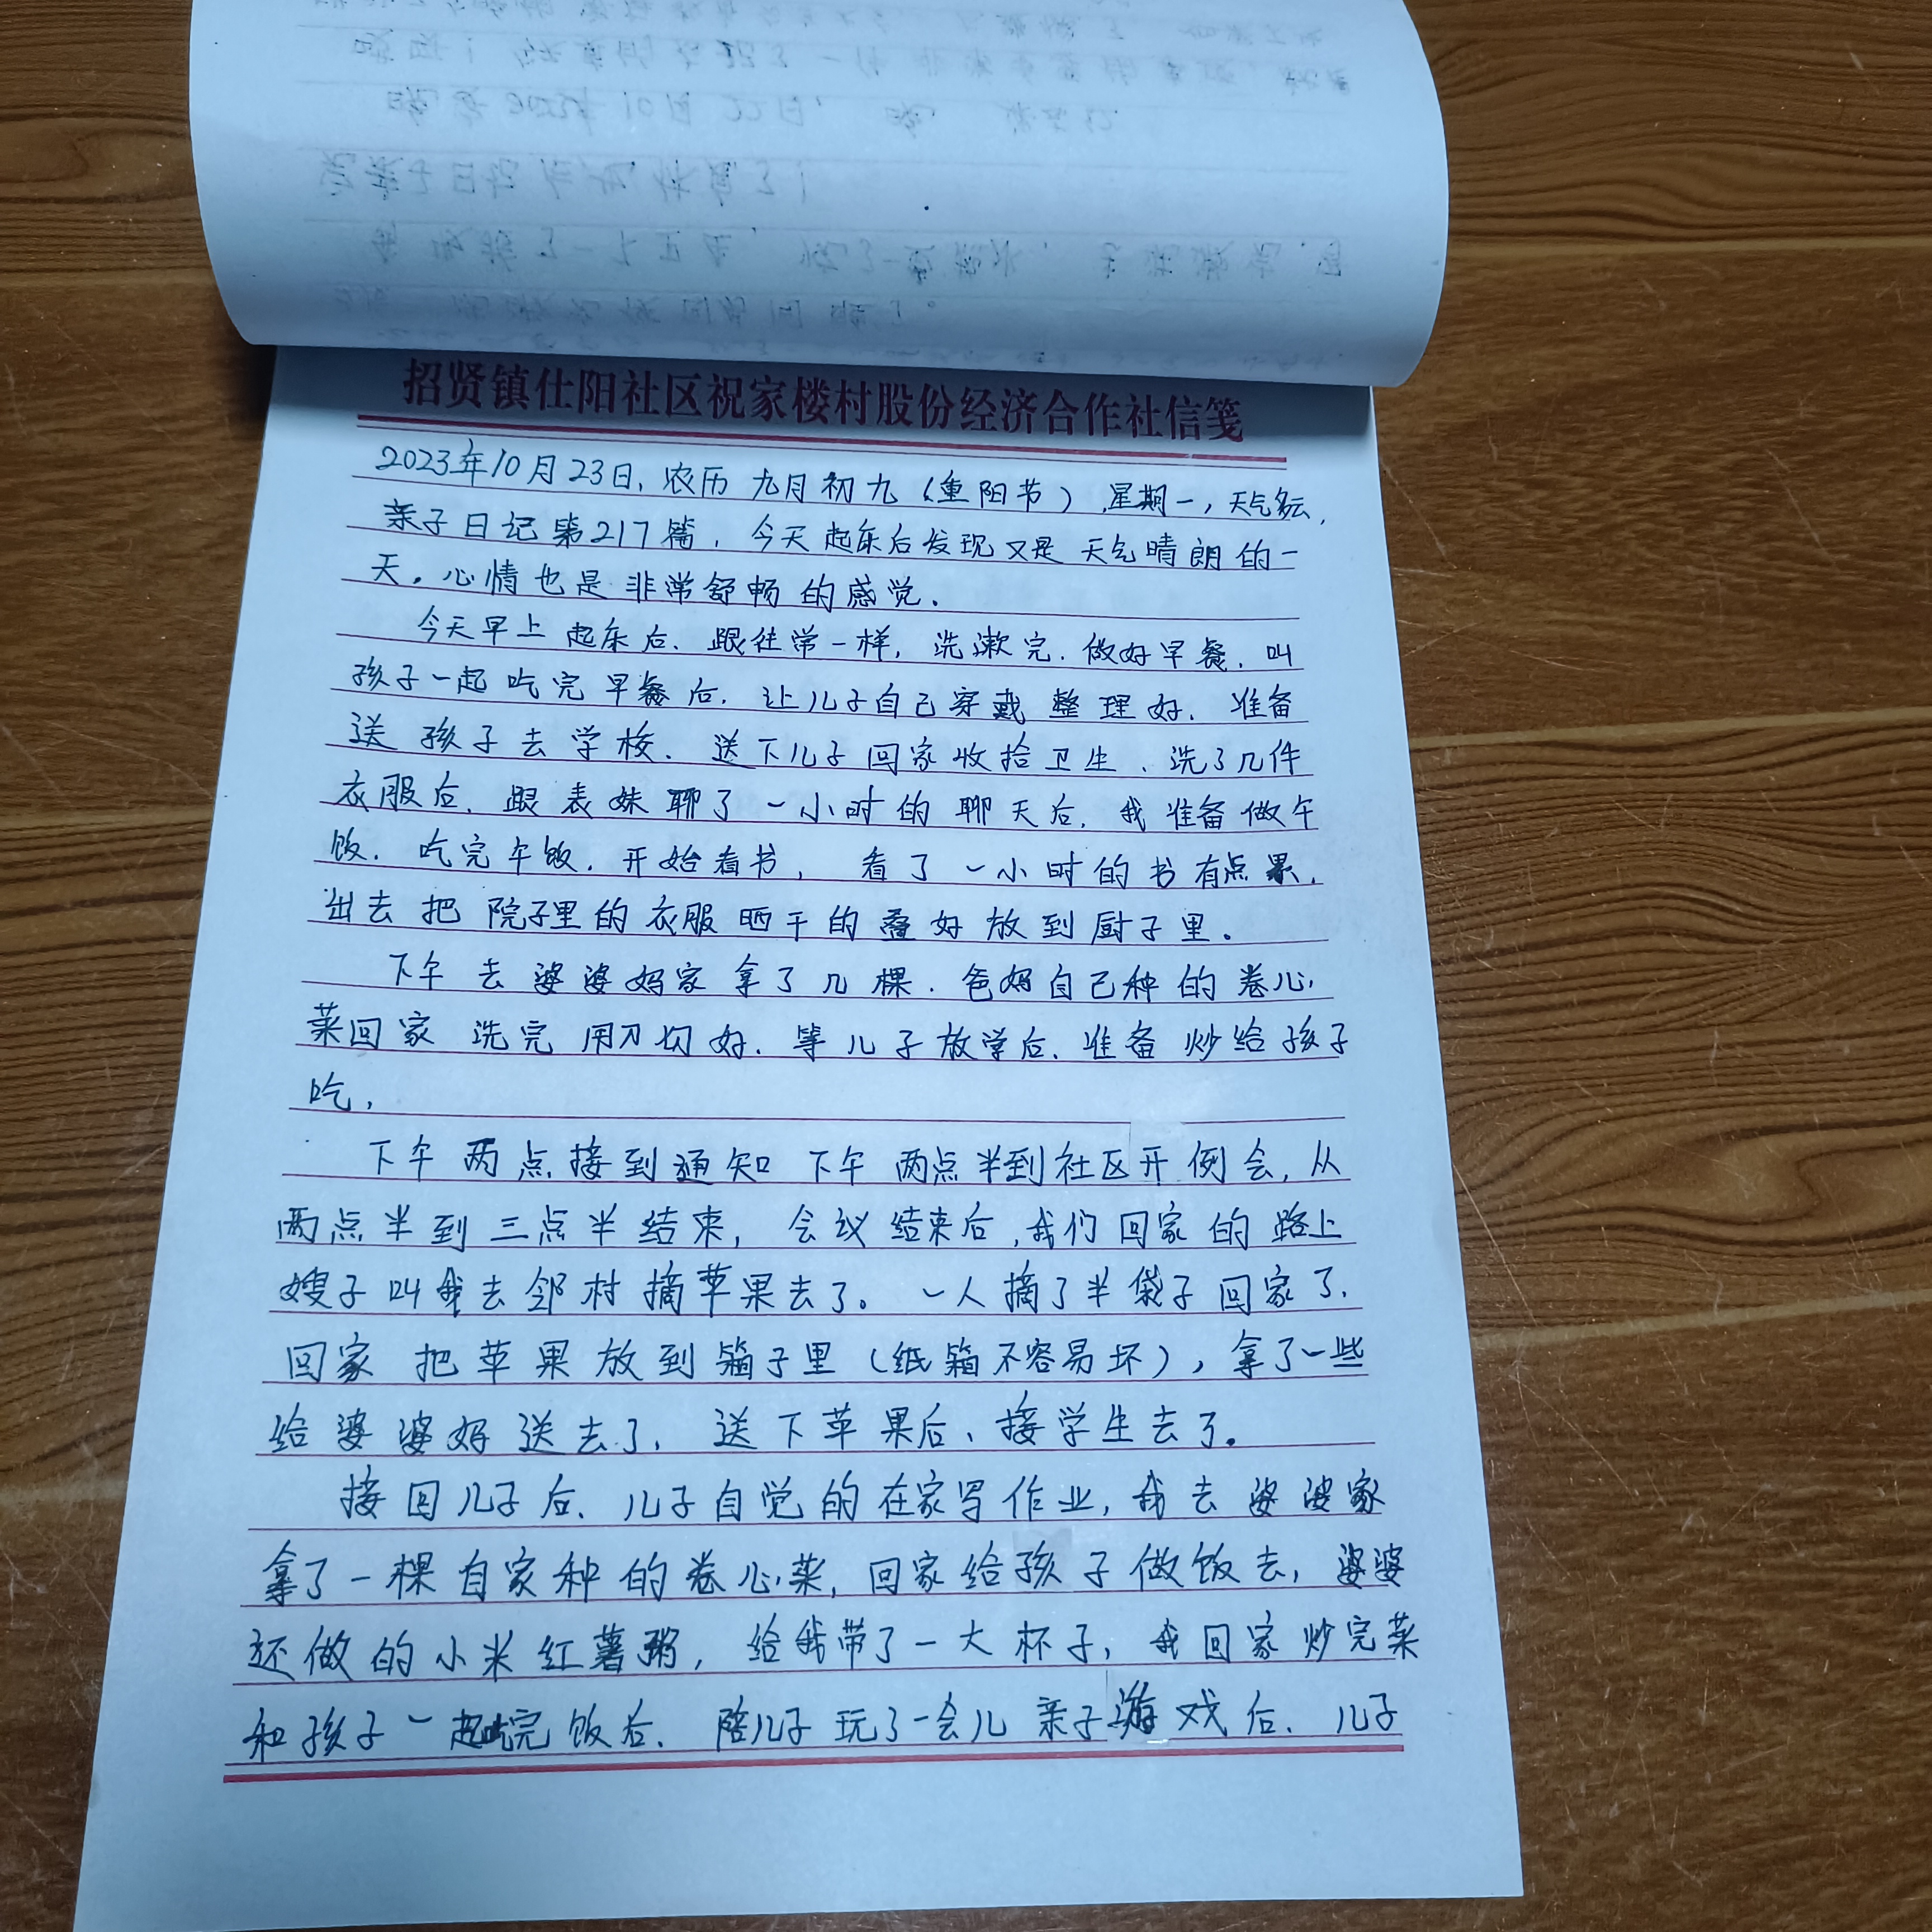 招贤镇仕阳社区祝家楼村股份经济合作社信笺
2023年10月23日,农历九月初九(重阳节),星期一,天气多云,
亲子日记第217篇,今天起床后发现又是天气晴朗的一
天。心情也是非常舒畅的感觉.
今天早上起床后、跟往常一样,洗漱完.做好早餐.叫
孩子一起吃完早餐后.让儿子自己穿戴整理好.准备
送孩子去学校.送下儿子回家收拾卫生、洗了几件
衣服后.跟表妹聊了一小时的聊天后.我准备做午
饭.吃完午饭.开始看书,看了一小时的书有点累.
出去把院子里的衣服晒干的叠好放到厨子里。
下午去婆婆妈家拿了几棵.爸妈自己种的卷心
菜回家洗完用刀切好.等儿子放学后.准备炒给孩子
吃,
下午两点接到通知下午两点半到社区开例会,从
两点半到三点半结束,会议结束后,我们回家的路上
嫂子叫我去邻村摘苹果去了。一人摘了半袋子回家了.
回家把苹果放到箱子里(纸箱不容易坏),拿了一些
给婆婆妈送去了,送下苹果后、接学生去了。
接回儿子后.儿子自觉的在家写作业,我去婆婆家
拿了一棵自家种的卷心菜,回家给孩子做饭去,婆婆
还做的小米红薯粥,给我带了一大杯子,我回家炒完菜
和孩子一起吃完饭后.陪儿子玩了一会儿亲子游戏后.儿子